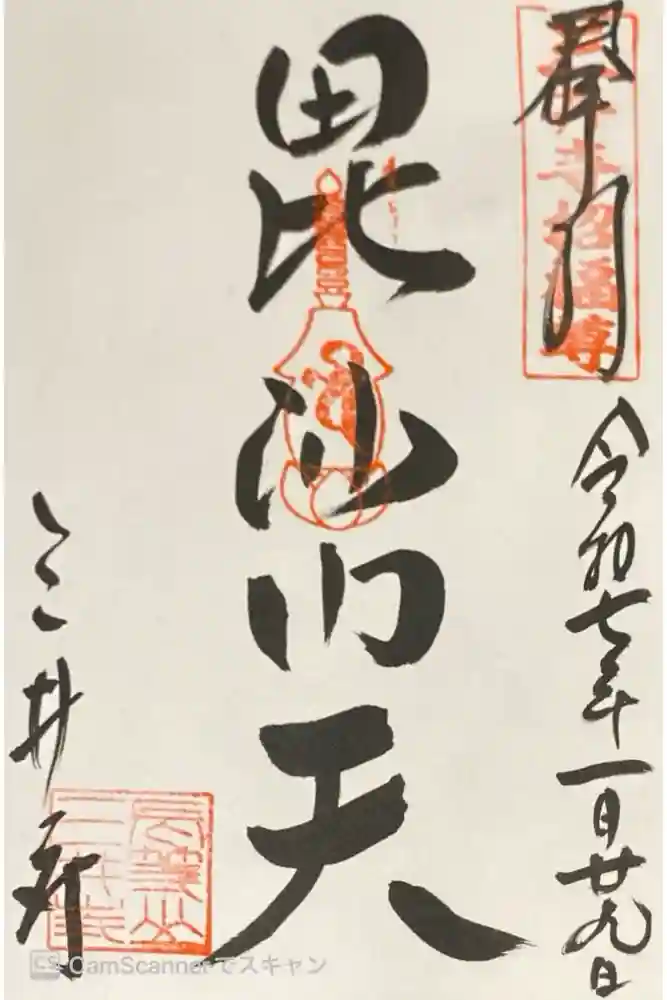 令和七年一月廿九日
毘沙門天
三井寺
長等山
CS CamScannerでスキャン